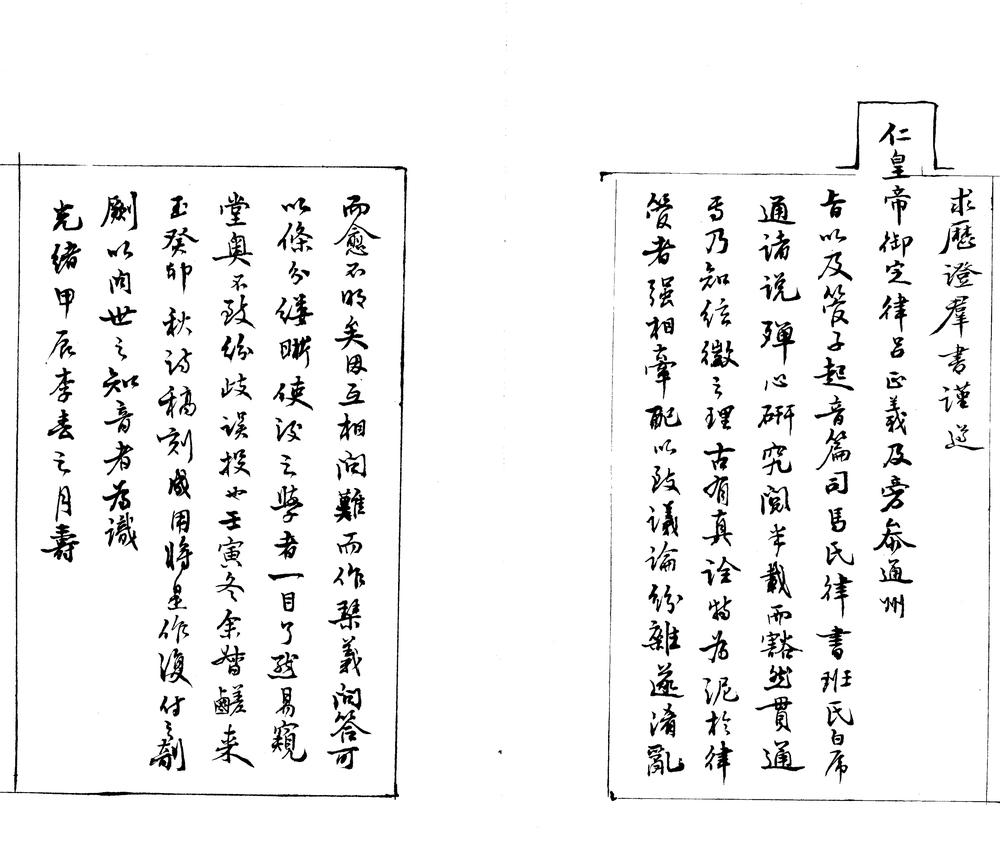 求歷澄羣書謹遵
仁皇帝御定律呂正義及旁叅通州
旨以及管子起音篇司馬氏律書班氏白虎
通諸说殫心研究閲半載而豁然貫通
焉乃知絃徽之理古有真詮特為泥於律
管者强相牽配以致議論紛雜遂淆亂
而愈不明矣因互相问難而作琴義问答可
以條分缕晰使後之學者一目了然易窺
堂奥不致紛歧误投也壬寅冬余権鹺来
玉癸卯秋诗稿刻成用將是作復付之剞
劂以问世之知音者為識
光緒甲辰季春之月壽